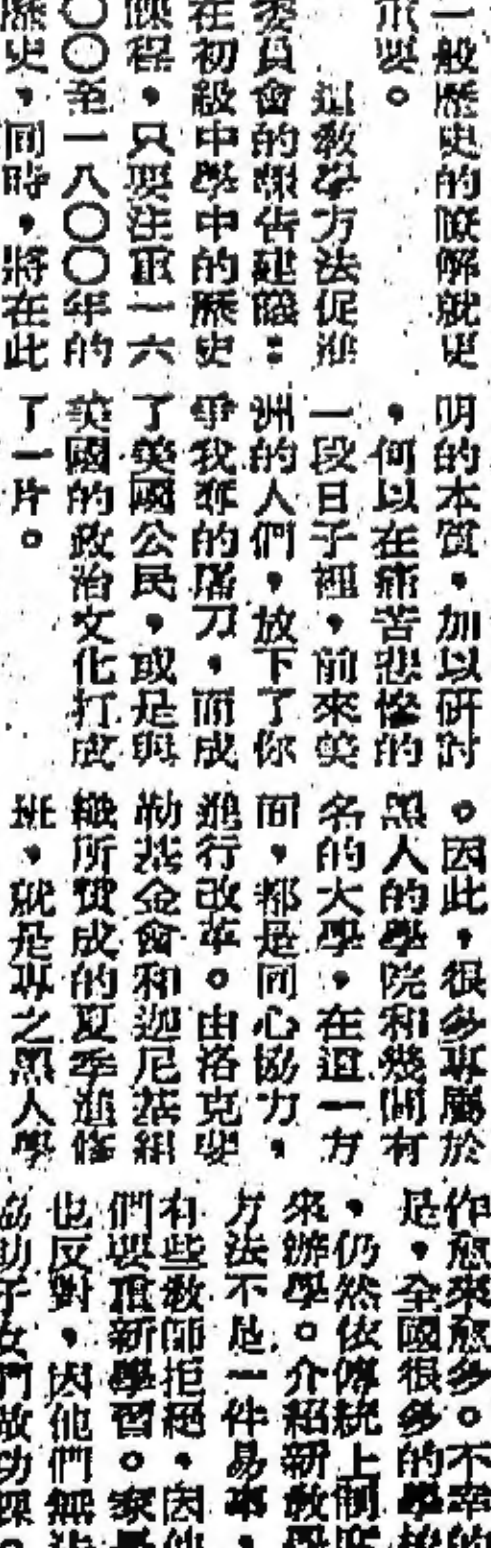 一般歷史的瞭解就更
重要。
這教學方法促進
委員會的報告建議：
在初級中學中的歷史
課程，只要注重一六
〇〇至一八〇〇年的
歷史，同時，將在此
明的本質，加以研討
，何以在痛苦悲慘的
一段日子裡，前來美
洲的人們，放下了你
爭我奪的屠刀，而成
了美國公民，或是與
美國的政治文化打成
了一片。
。因此，很多專屬於
黑人的學院和幾間有
名的大學，在這一方
面，都是同心協力，
進行改革。由洛克斐
勒基金會和迦尼基組
織所贊成的夏季進修
班，就是專之黑人學
作愈來愈多。不幸的
是，全國很多的學校
，仍然依傳統上制度
來辦學。介紹新教學
方法不是一件易事，
有些教師拒絕，因他
們要重新學習。家長
也反對，因他們無法
協助子女們做功課。